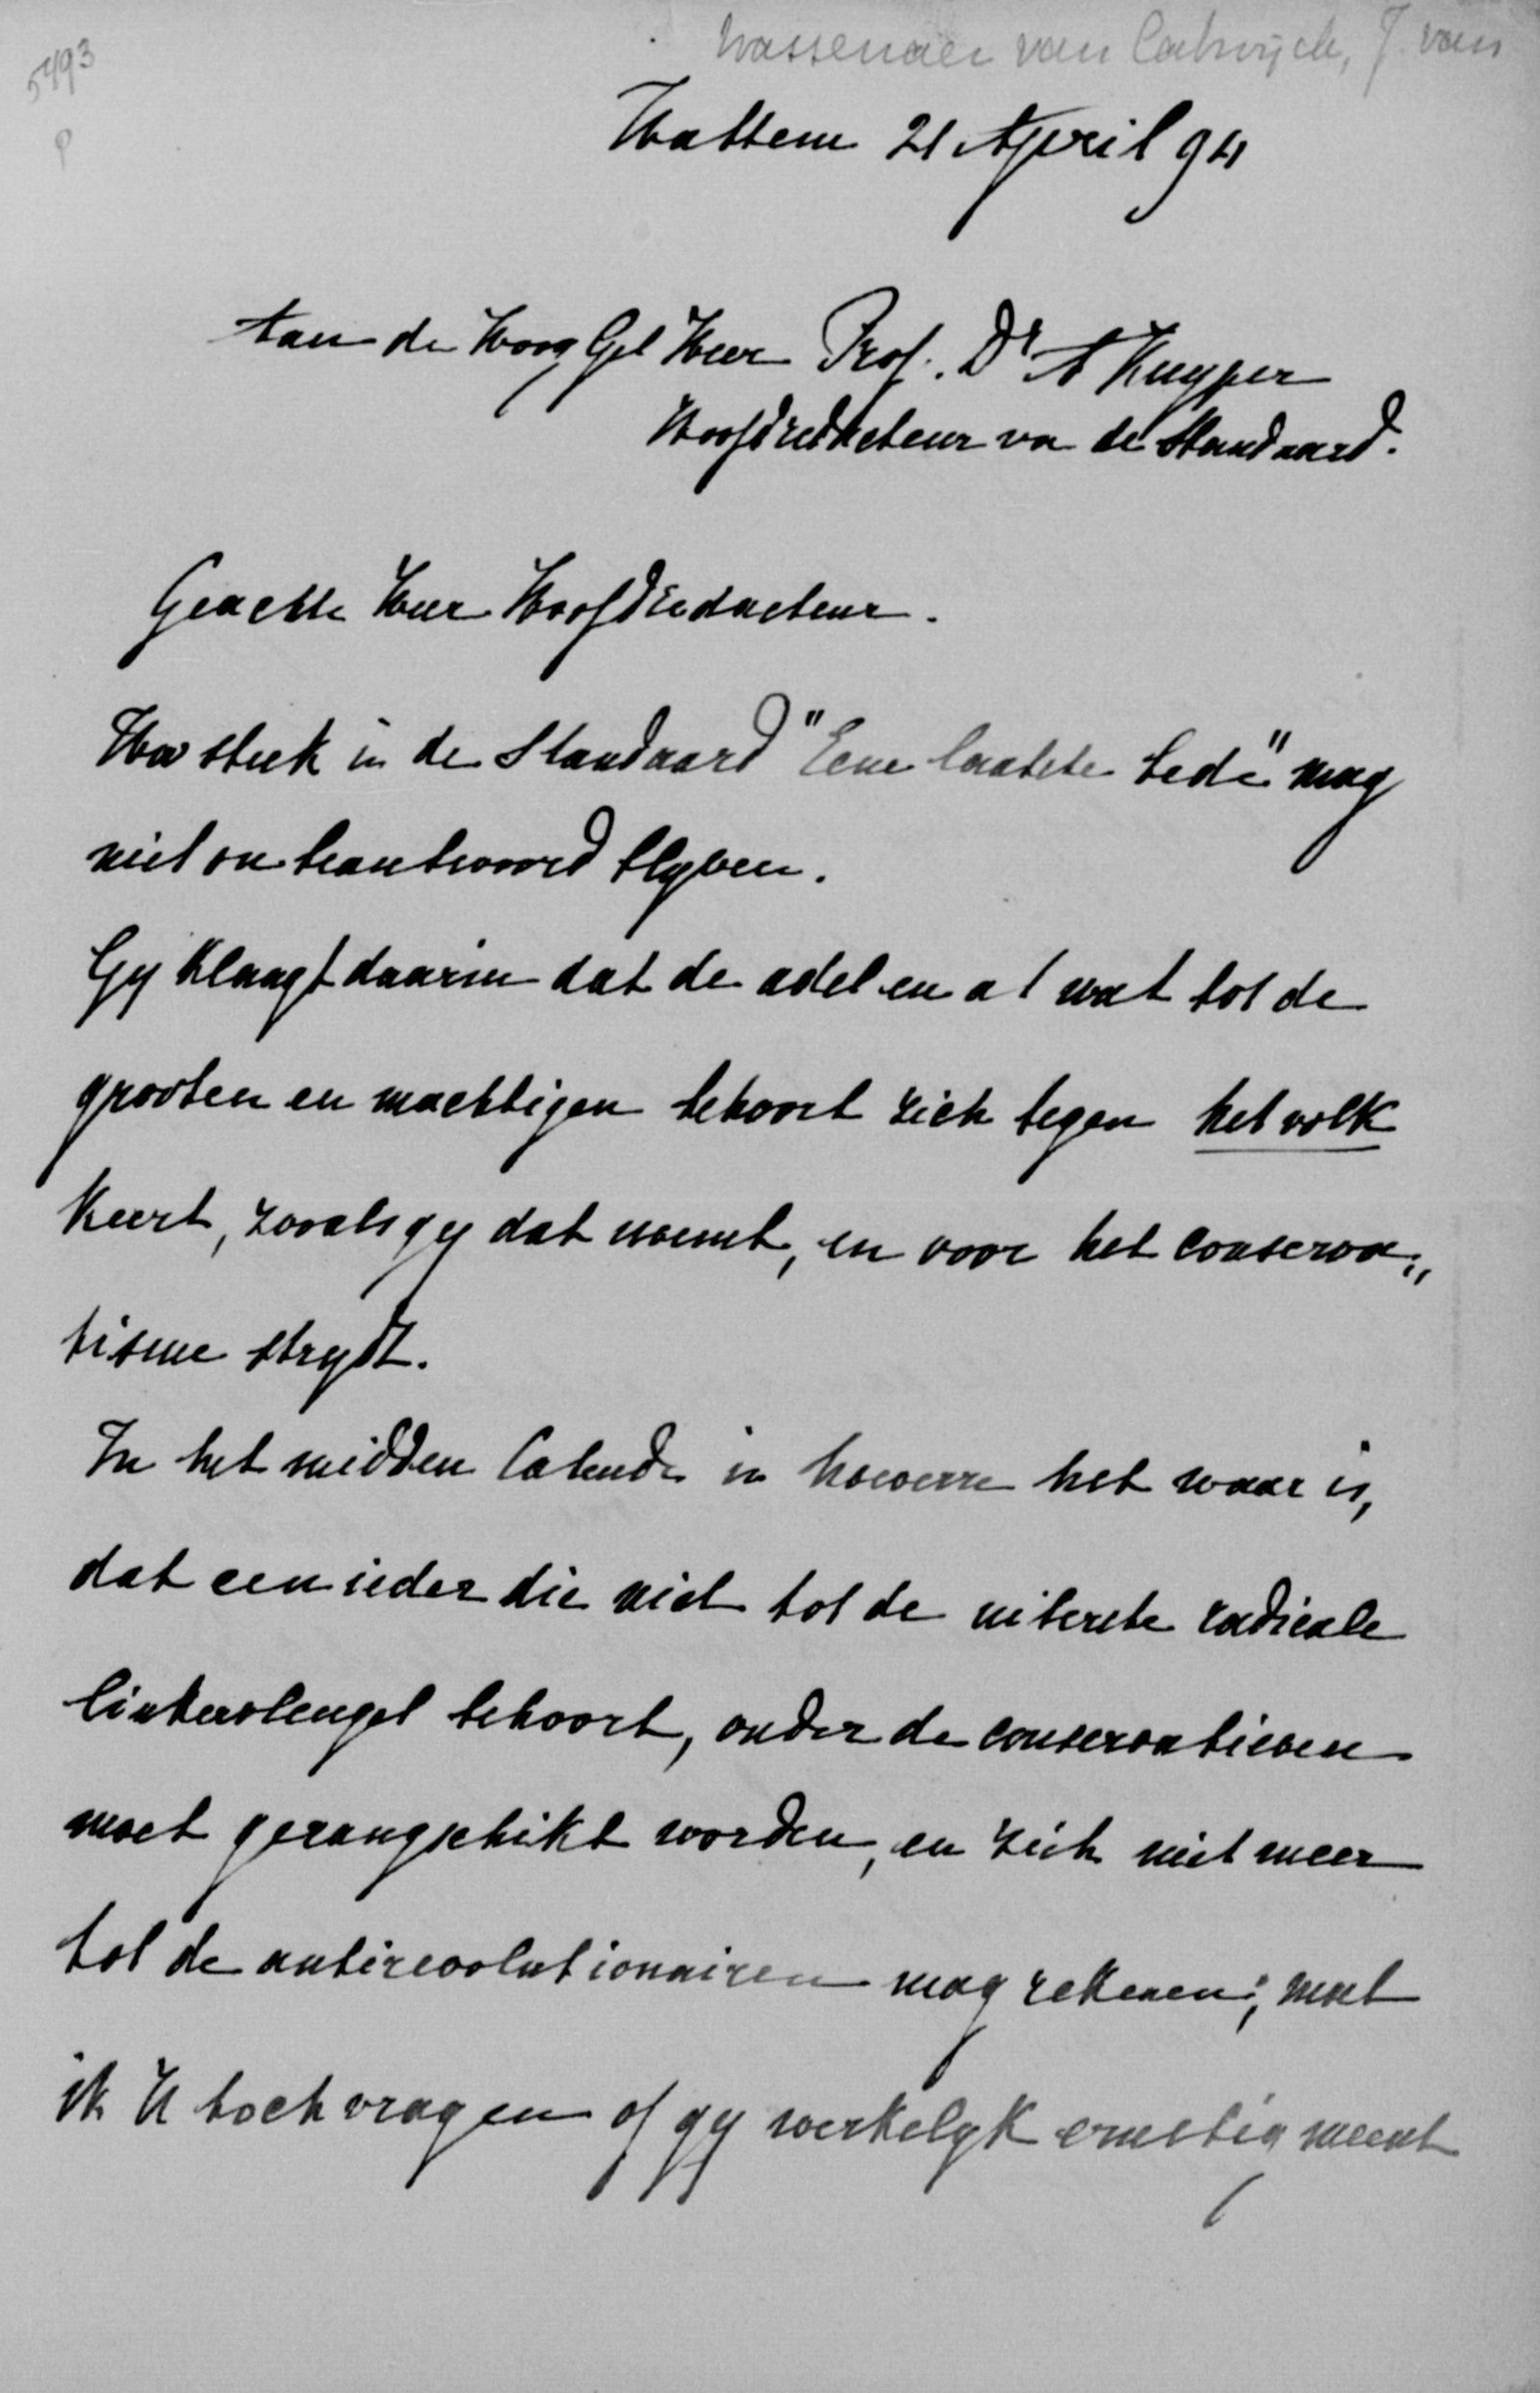 5493
P
Wassenaer van Catwijck, J. van
Hattem 21 April 94
Aan de Hoog Gel Heer Prof. Dr A Kuyper
Hoofdredacteur va de Standaard.
Geachte Heer Hoofdredacteur.
Uw stuk in de Standaard "Eene laatste bede" mag
niet onbeantwoord blyven.
Gy klaagt daarin dat de adel en al wat tot de
grooten en machtigen behoort zich tegen het volk
keert, zooals gy dat noemt, en voor het conserva„
tisme strydt.
In het midden latende in hoeverre het waar is,
dat een ieder die niet tot de uiterste radicale
linkervleugel behoort, onder de conservatieven
moet gerangschikt worden, en zich niet meer
tot de antirevolutionairen mag rekenen; moet
ik U toch vragen of gy werkelyk ernstig meent